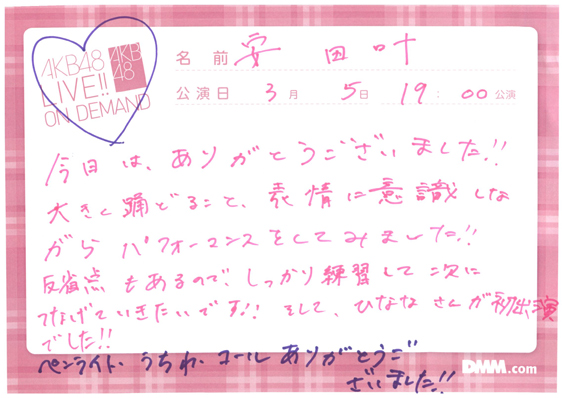 AKB48
LIVE!!
ON DEMAND
AKB
48
名前 安田叶
公演日 3月 5日 19:00公演
今日は、ありがとうございました!!
大きく踊どること、表情に意識しな
がら パフォーマンスをしてみました!!
反省点もあるので、しっかり練習して次に
つなげていきたいです!! そして、ひななさんが初出演
でした!!
ペンライト、うちわ、コール ありがとうご
ざいました!!
DMM.com